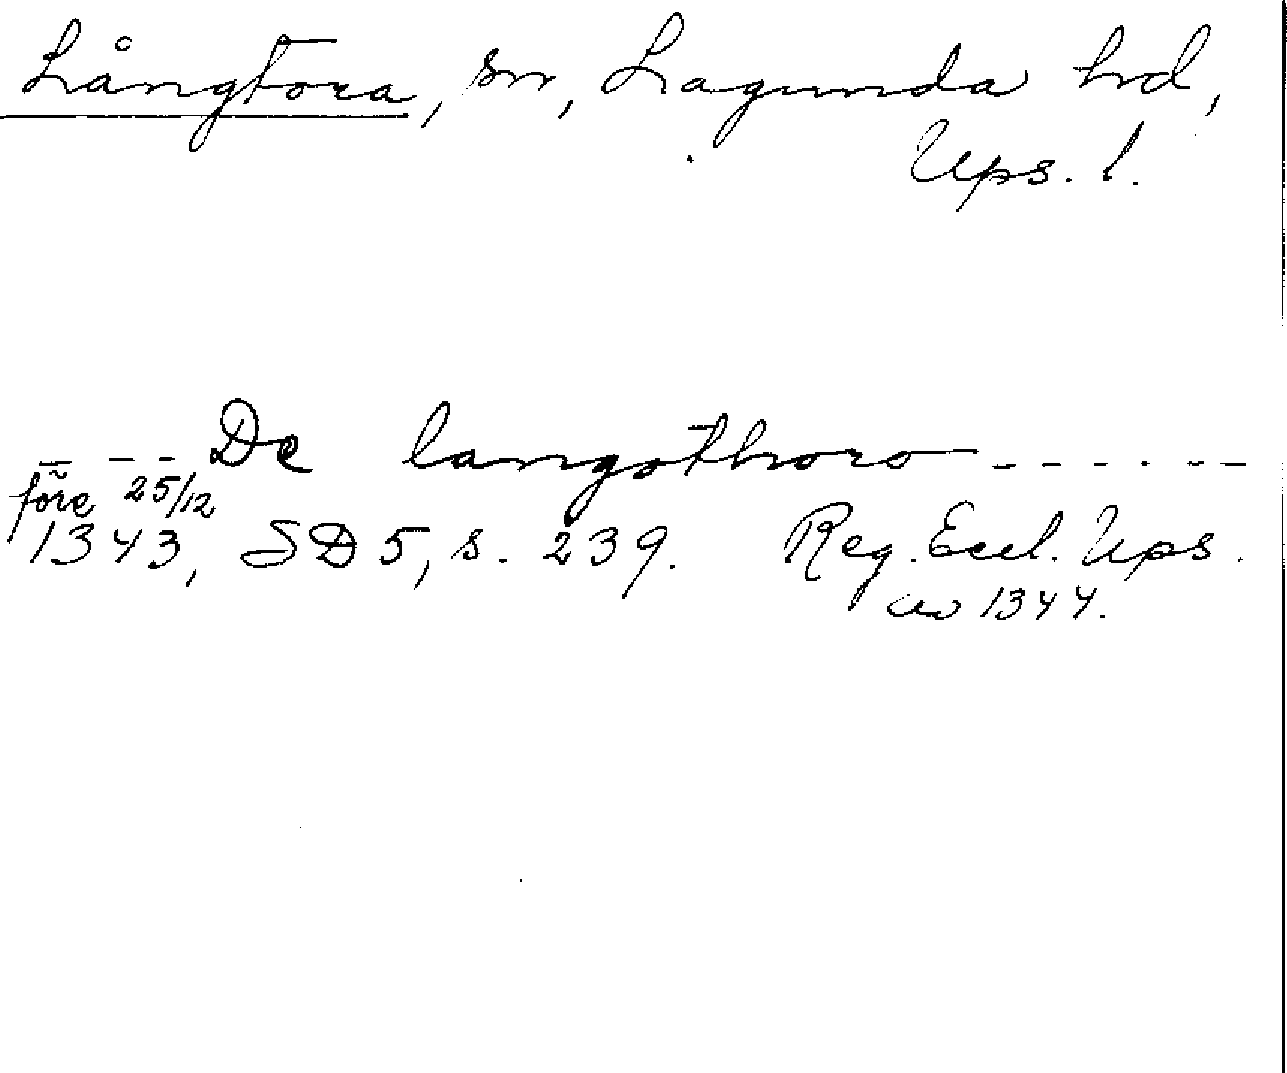 Långtora, sn, Lagunda hd,
Ups. l.
--- De langothoro ------
före 25/12
1343, SD 5, s. 239. Reg. Eccl. Ups.
av 1344.